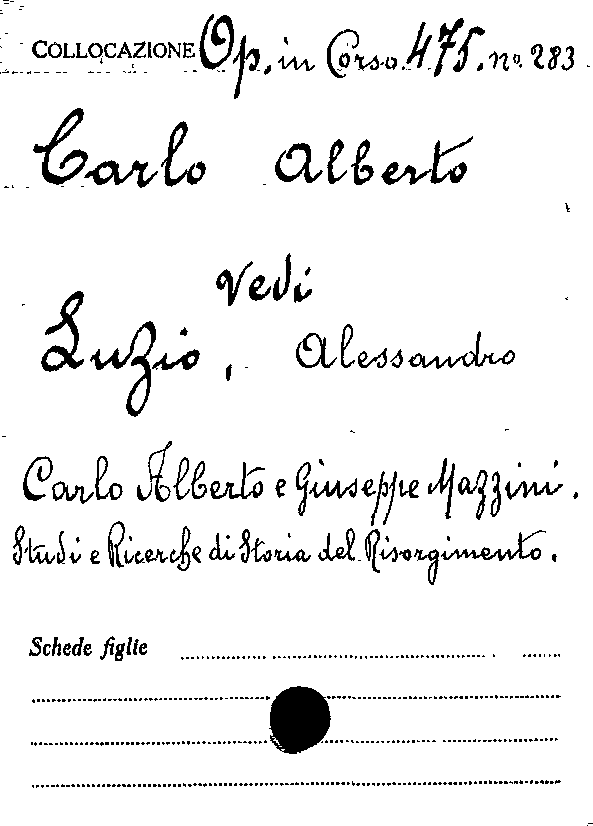 COLLOCAZIONE Op. in Corso 475. no. 283
Carlo Alberto
vedi
Luzio, Alessandro
Carlo Alberto e Giuseppe Mazzini.
Studi e Ricerche di Storia del Risorgimento.
Schede figlie